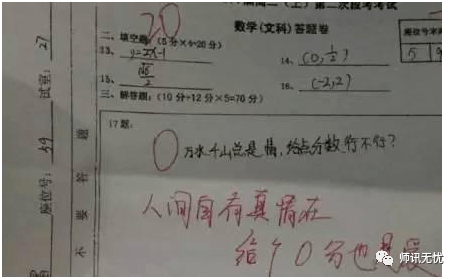 (上)第二次段考考试
数学(文科)答题卷
20
二、填空题(5分×4=20分)
13. y=2x-1
14. (0, 1/2)
15.
16. (-2,2)
三、解答题:(10分+12分×5=70分)
17题:
0
万水千山总是情,给点分数行不行?
人间自有真情在
给个0分也是爱
座位号: 59 试室: 27
不 要 答 题
座位号末
5
师讯无忧